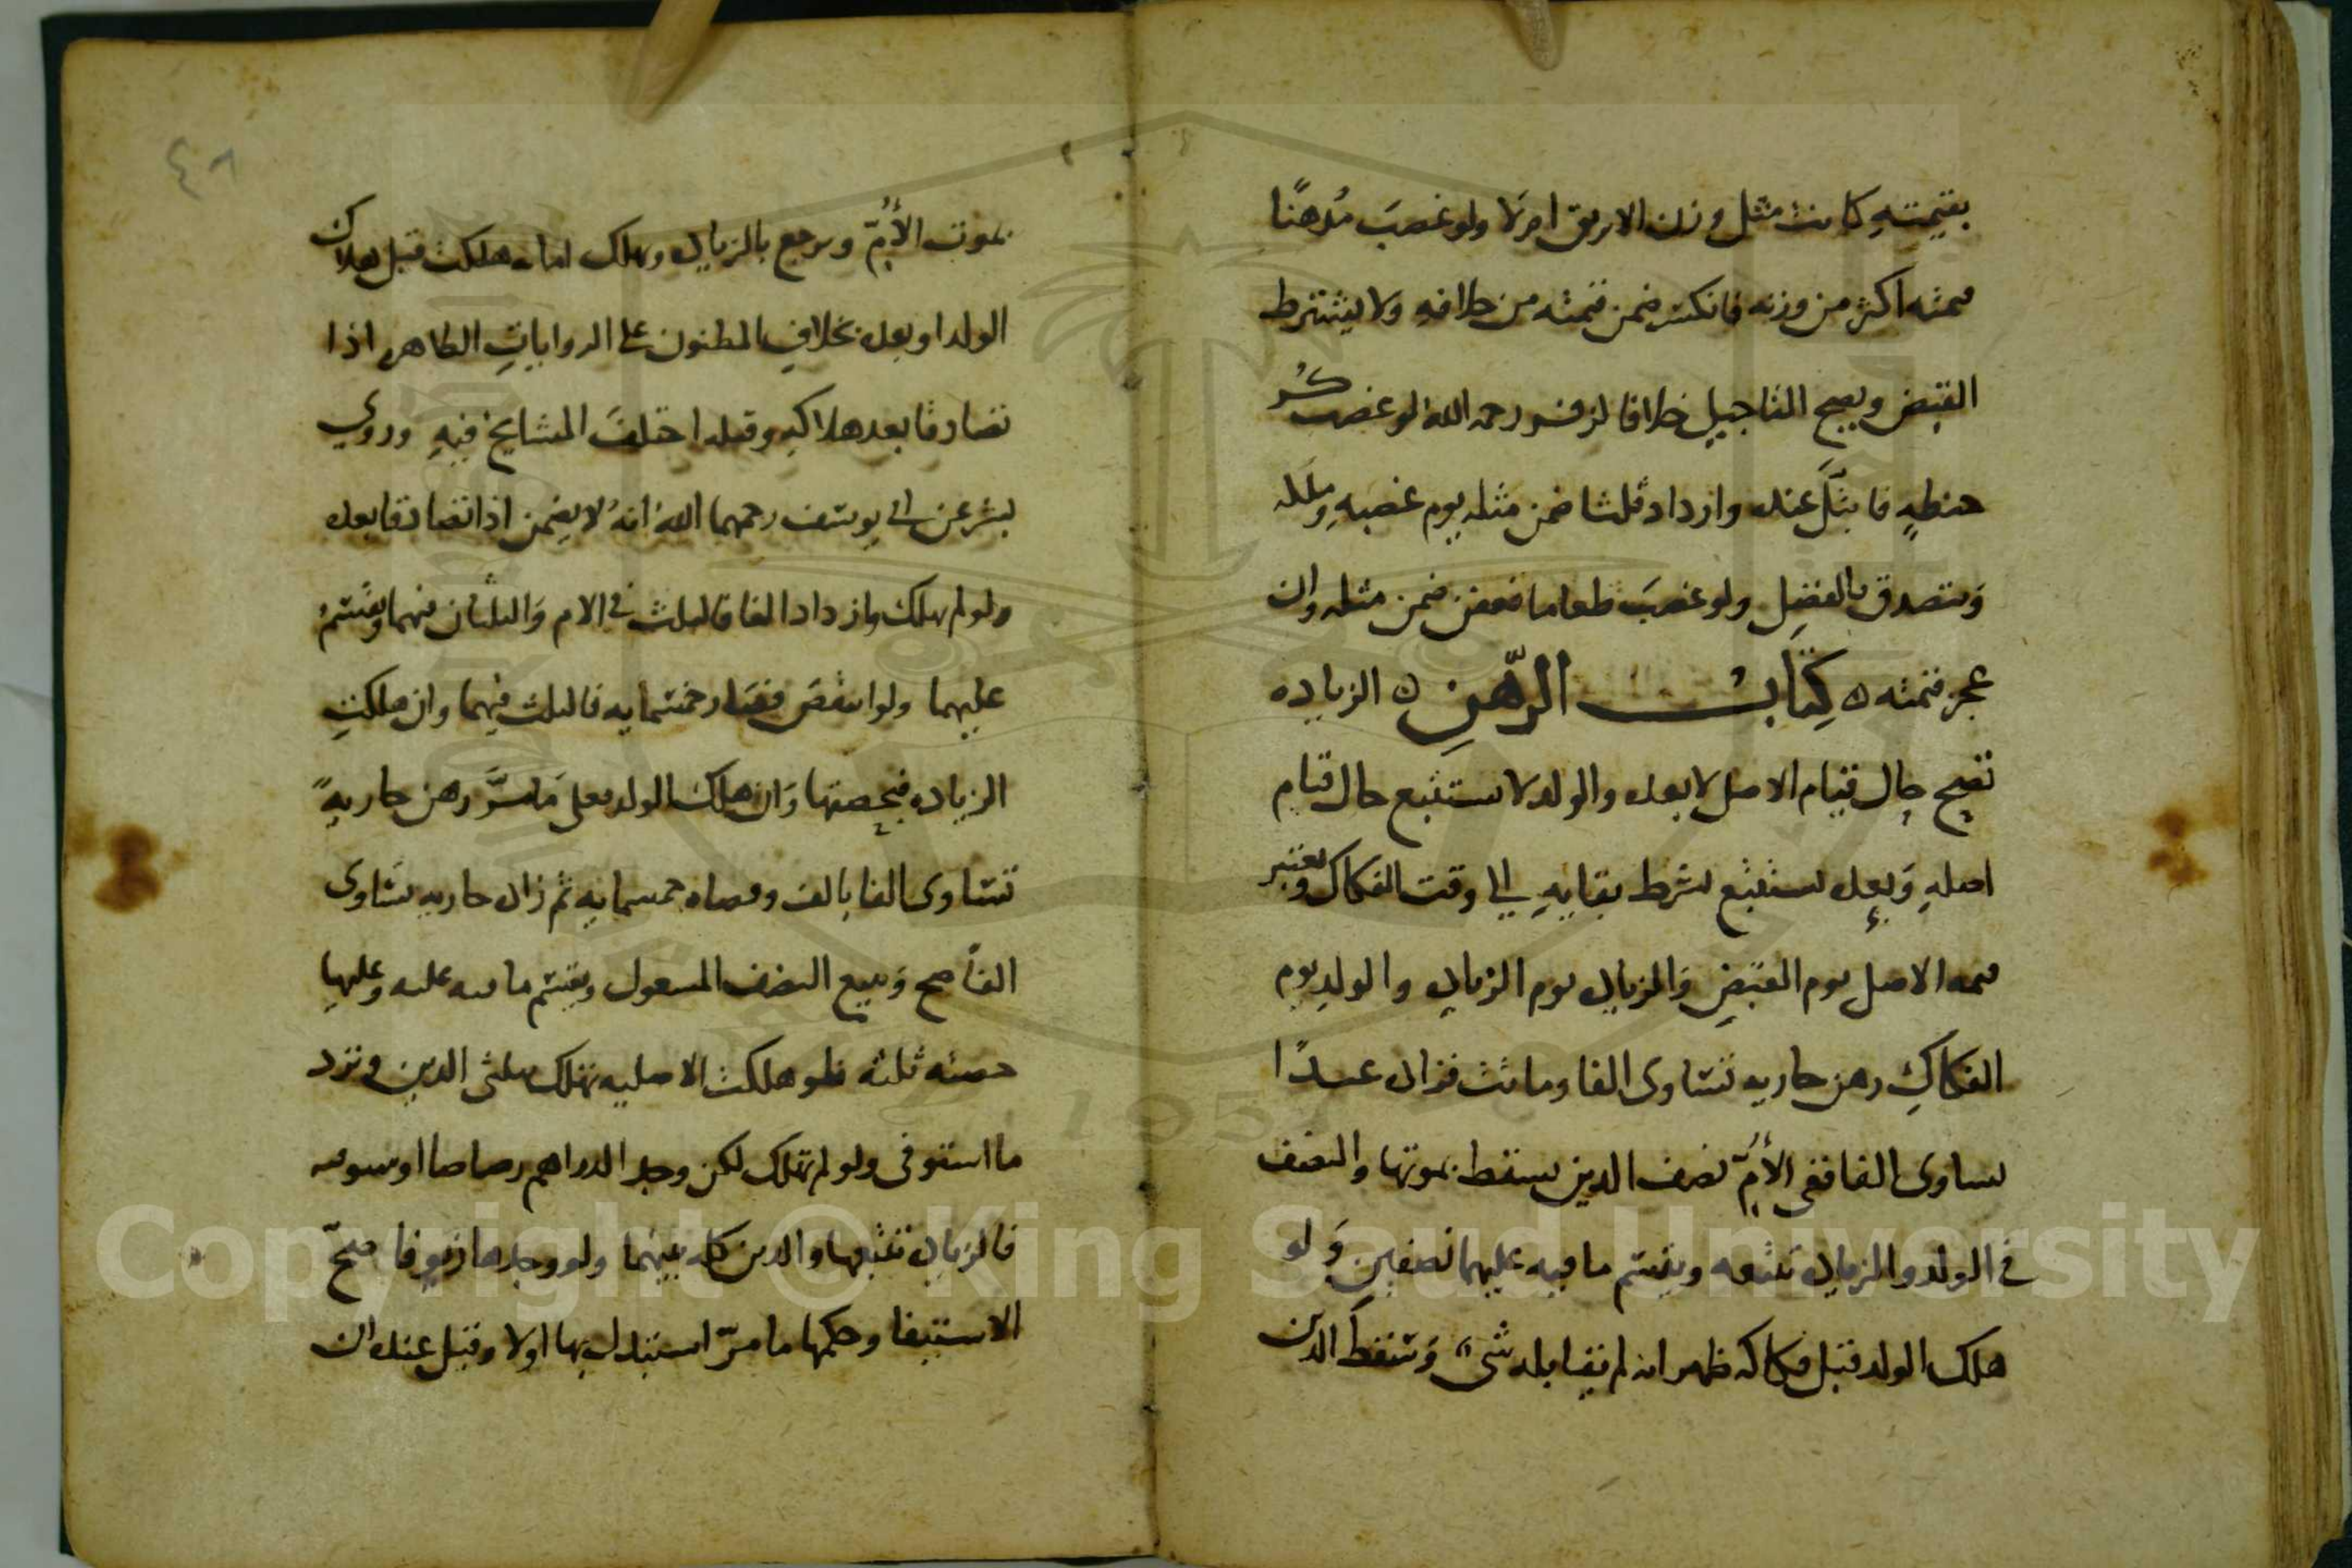 بقيمته كانت مثل وزن الابريق اولا ولو غصب مُدهنًا
قيمته اكثر من وزنه فانكسر ضمن قيمته من خلافه ولا يشترط
القبض ويصح التاجيل خلافا لزفر رحمه الله لو غصب كُر
حنطةٍ فابتلّ عنده وازداد ثلثا ضمن مثله يوم غصبهِ وملكه
وَيتصدق بالفضِل ولو غصبَ طعاما فعفن ضمن مثله وان
عجز قيمته ه كِتَابُ الرّهنِ ه الزياده
تصح حال قيام الاصل لا بعده والولد لا يستتبع حال قيام
اصلهِ وَبعده يستتبع بشرط بقايهِ الي وقت الفكاك ويعتبر
قيمه الاصل يوم القبضِ وَالزياده يوم الزياده والولد يوم
الفكاكِ رهن جاريه تساوى الفا وماتت فزاد عبدًا
يساوى الفا ففى الأُمّ نصف الدين يسقط بموتها والنصف
في الولد والزياده تتبعه ويقسم ما فيه عليهما نصفين وَلو
هلك الولد قبل فكاكه ظهر انه لم يقابله شىء وَسقط الدين
بموت الأُمّ ويرجع بالزياده وهلك امانه هلكت قبل هلاك
الولد او بعده بخلافِ المظنون على الروايات الظاهره اذا
تصادقا بعد هلاكه وقبله اختلفَ المشايخ فيهِ وروي
بشر عن ابي يوسف رحمهما الله انهُ لا يضمن اذا تصادقا بعده
ولو لم يهلك وازداد الفا فالثلث في الام وَالثلثان فيهما ويقسمُ
عليهما ولو انتقصَ فصَار خمسمايه فالثلث فيهما وان هلكتِ
الزياده فبحصتها وَان هلك الولد فعلى مَا مرَّ رهن جاريةً
تساوى الفا بالف وقضاه خمسمايه ثم زاد جاريه تساوى
الفاً صح وَيتبع النصف المشغول ويقسم ما فيه عليه وعليها
حصته ثلثه فلو هلكت الاصليه تهلك بثلثى الدين ويرد
ما استوفى ولو لم تهلك لكن وجد الدراهم رصاصا او ستوقه
فالزياده تتبعها والدين كله بينهما ولو وجدها زيوفا صحّ
الاستيفا وحكمها ما مرّ استبدل بها اولا وقيل عنده ان
٤٨
Copyright © King Saud University
1957